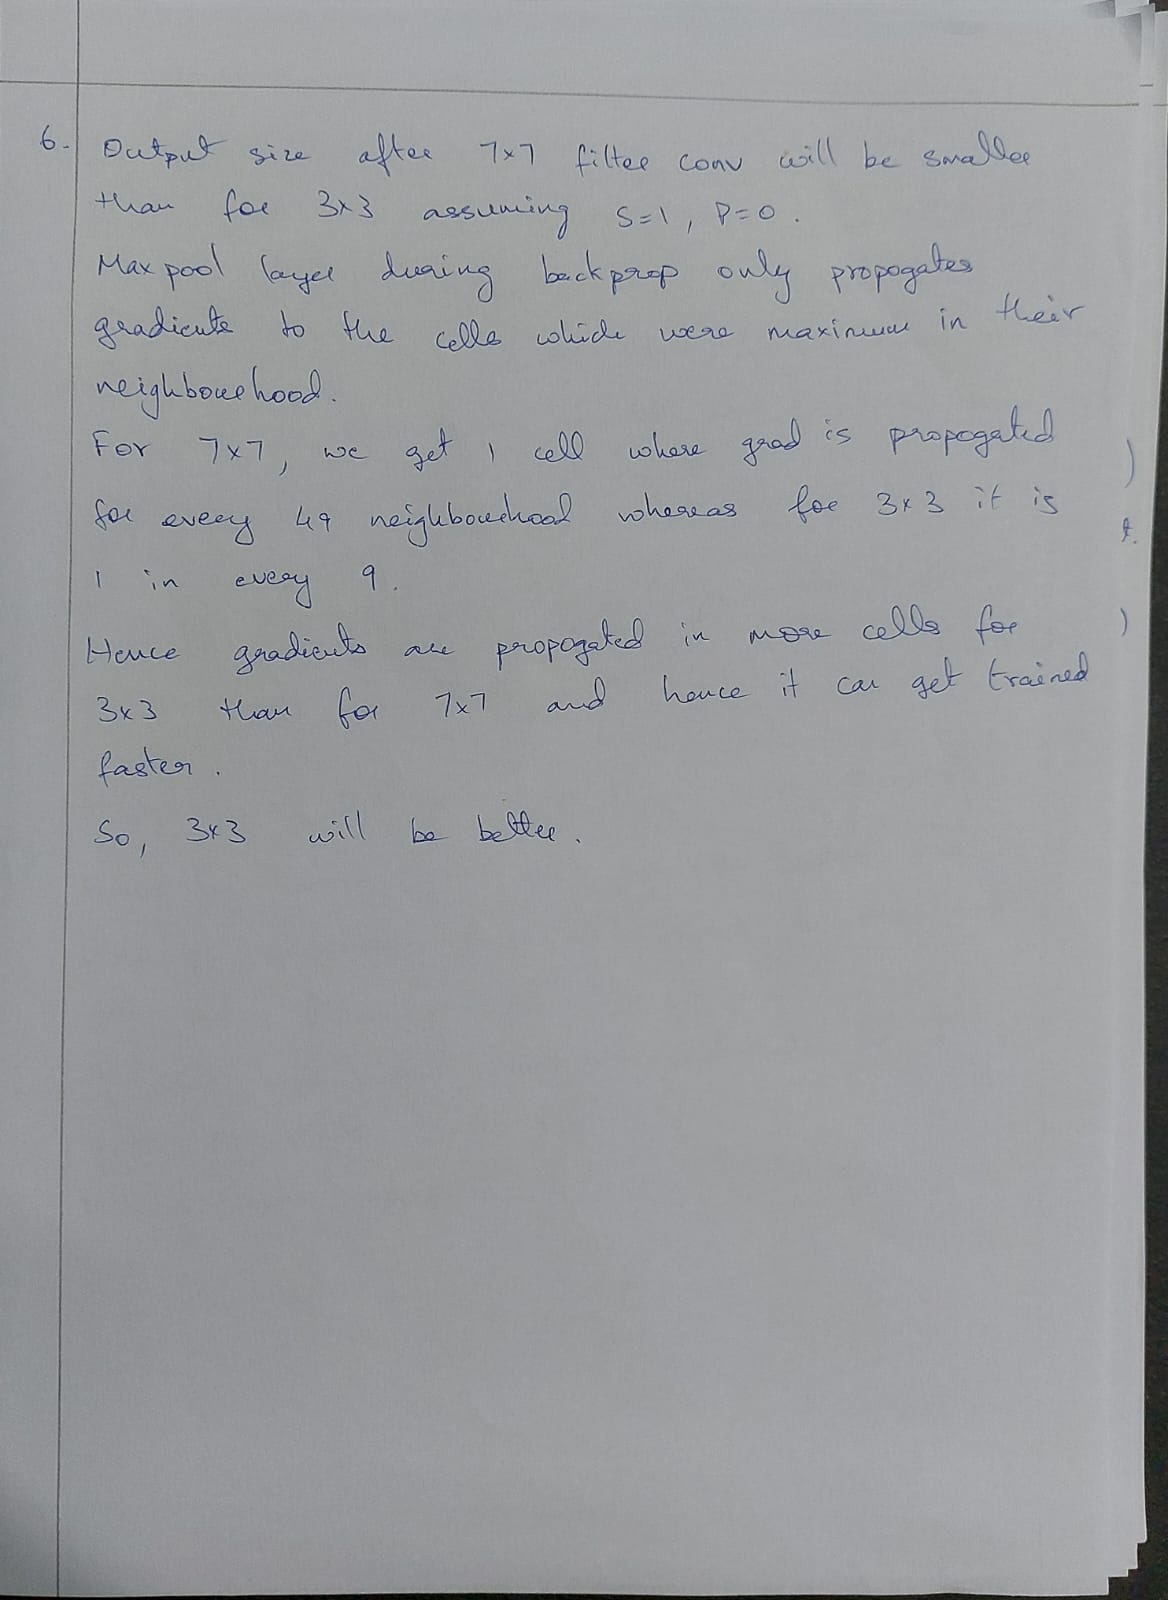 6. Output size after 7x7 filter conv will be smaller
than for 3x3 assuming S=1, P=0.
Maxpool layer during backprop only propogates
gradients to the cells which were maximum in their
neighbourhood.
For 7x7, we get 1 cell where grad is propogated
for every 49 neighbourhood whereas for 3x3 it is
1 in every 9.
Hence gradients are propogated in more cells for
3x3 than for 7x7 and hence it can get trained
faster.
So, 3x3 will be better.